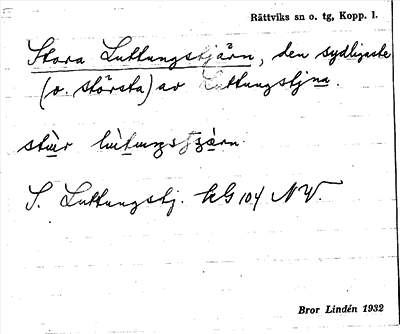 Rättviks sn o. tg, Kopp. l.
Stora Luttungstjärn, den sydligaste
(o. största) av Luttungstjna.
S. Luttungstj. kG 104 NV.
Bror Lindén 1932